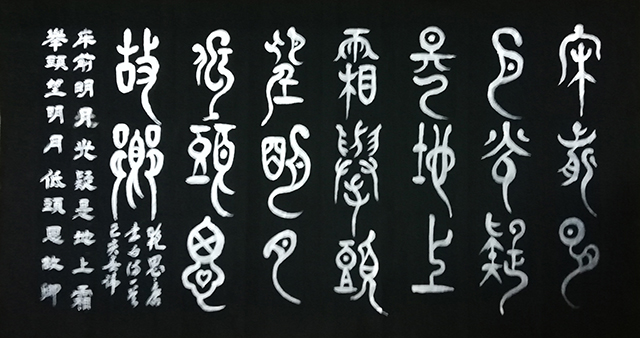 床前明
月光疑
是地上
霜舉頭
望明月
低頭思
故鄉
李白诗
己亥
床前明月光疑是地上霜
舉頭望明月低頭思故鄉